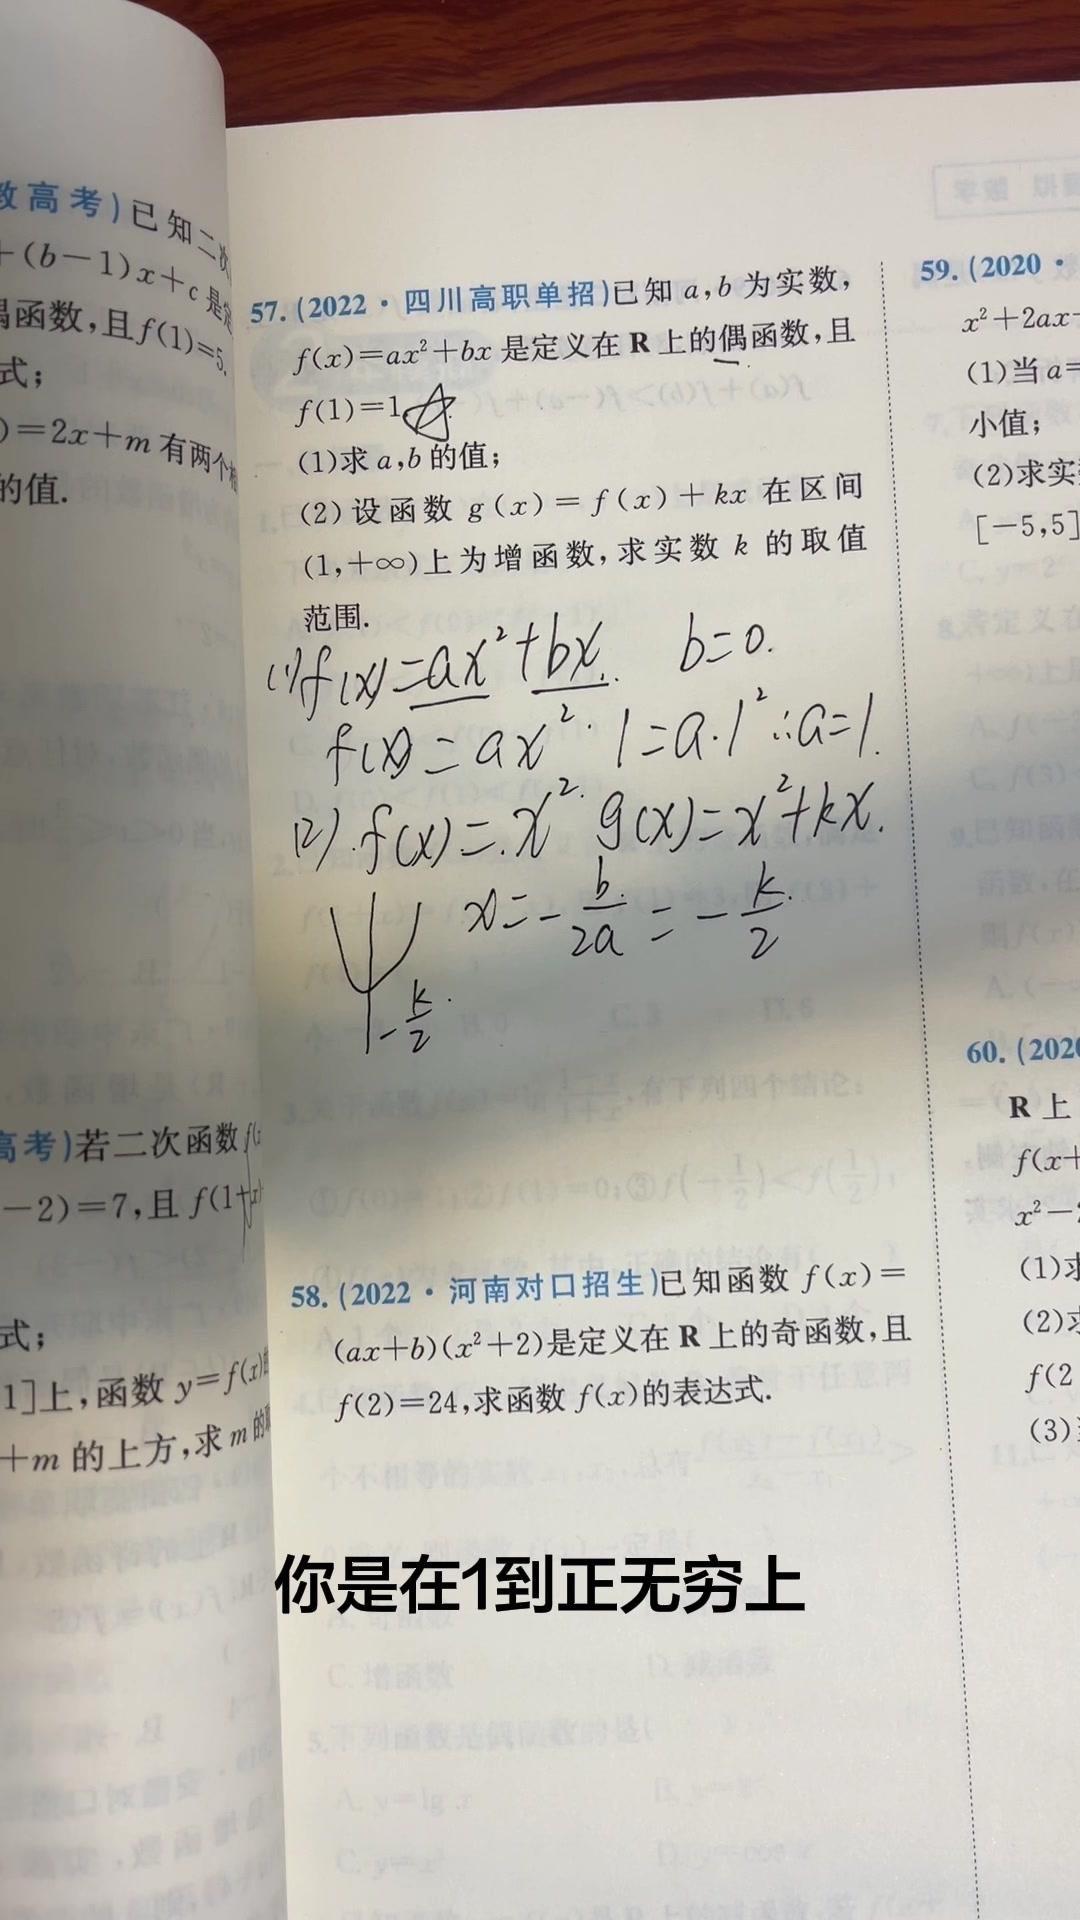 数高考)已知二次
+(b-1)x+c是定
偶函数,且f(1)=5.
式;
)=2x+m有两个相
的值.
高考)若二次函数f(
-2)=7,且f(1+x)
式;
1]上,函数y=f(x)的
+m的上方,求m的取
57.(2022·四川高职单招)已知a,b为实数,
f(x)=ax²+bx是定义在R上的偶函数,且
f(1)=1.
(1)求a,b的值;
(2)设函数g(x)=f(x)+kx在区间
(1,+∞)上为增函数,求实数k的取值
范围.
(1)f(x)=ax²+bx. b=0.
f(x)=ax². 1=a·1² ∴a=1.
(2).f(x)=x². g(x)=x²+kx.
x=-b/2a=-k/2.
-k/2.
58.(2022·河南对口招生)已知函数f(x)=
(ax+b)(x²+2)是定义在R上的奇函数,且
f(2)=24,求函数f(x)的表达式.
你是在1到正无穷上
59.(2020·
x²+2ax
(1)当a=
小值;
(2)求实
[-5,5]
60.(2020
R上
f(x+
x²-
(1)求
(2)求
f(2
(3)